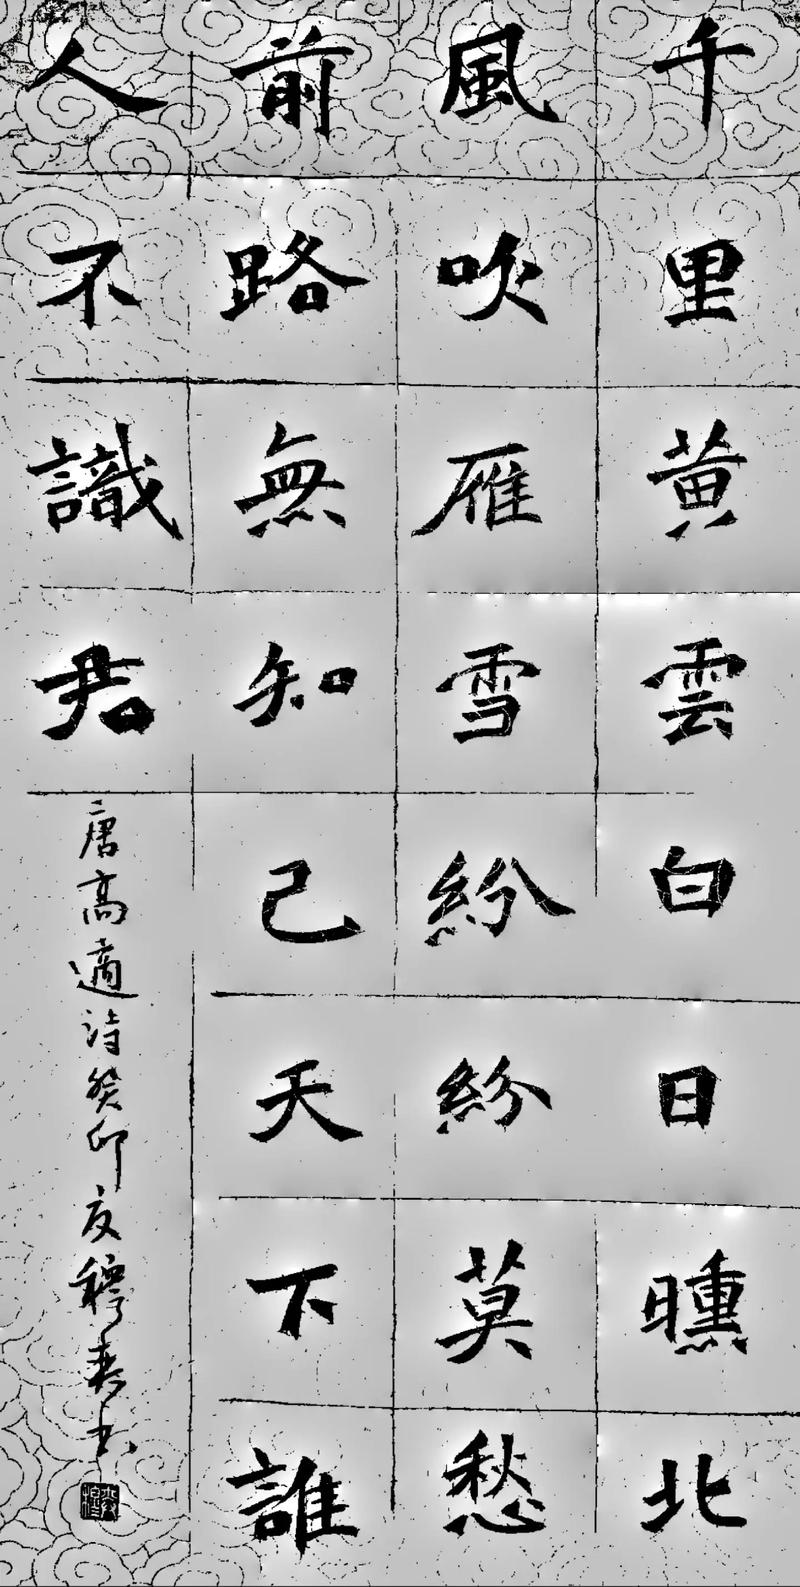 千里黄雲白日曛北
風吹雁雪紛紛莫愁
前路無知己天下誰
人不識君
唐高適詩癸卯夏穆春書